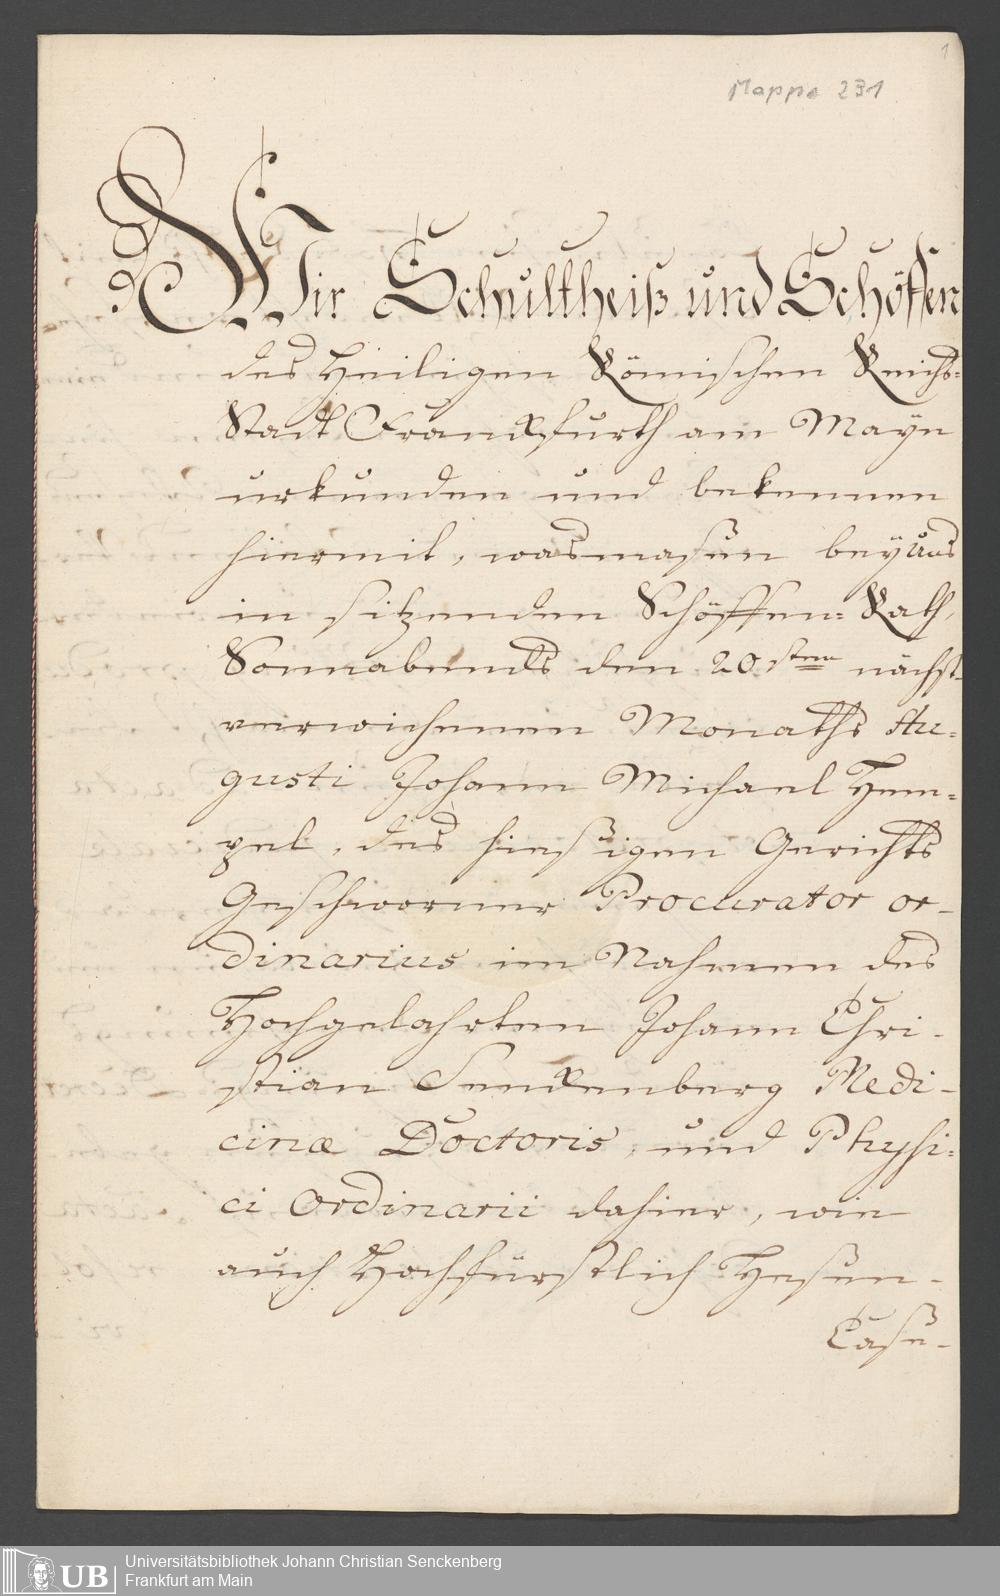 1
Mappe 231
Wir Schultheiß und Schöffen
des Heiligen Römischen Reichs-
Stadt Franckfurth am Mayn
urkunden und bekennen
hiermit, wasmasen bey uns
in sitzenden Schöffen-Rath,
Sonnabends den 20sten nächst-
verwichenen Monaths Au-
gusti Johann Michael Hem-
pel, des hiesigen Gerichts
Geschworner Procurator or-
dinarius im Nahmen des
Hochgelahrten Johann Chri-
stian Senckenberg Medi-
cinæ Doctoris, und Physi-
ci Ordinarii dahier, wie
auch Hochfürstlich Hesen-
Casse-
UB
Universitätsbibliothek Johann Christian Senckenberg
Frankfurt am Main